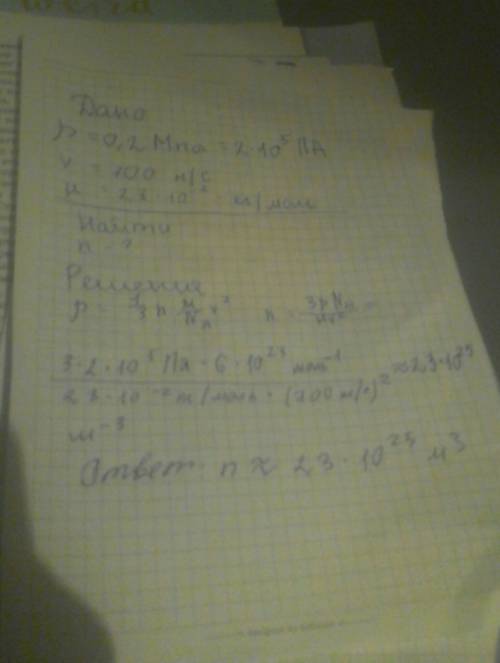 Дано
p = 0,2 Мпа = 2·10⁵ ПА
v = 700 м/с
μ = 2,3·10⁻² кг/моль
Найти
n - ?
Решения
p = 1/3 n μ/Nₐ v² n = 3pNₐ/μv² =
3·2·10⁵ Па·6·10²³ моль⁻¹
2,3·10⁻² кг/моль·(700 м/с)² ≈ 2,3·10²⁵
м⁻³
Ответ: n ≈ 2,3·10²⁵ м³